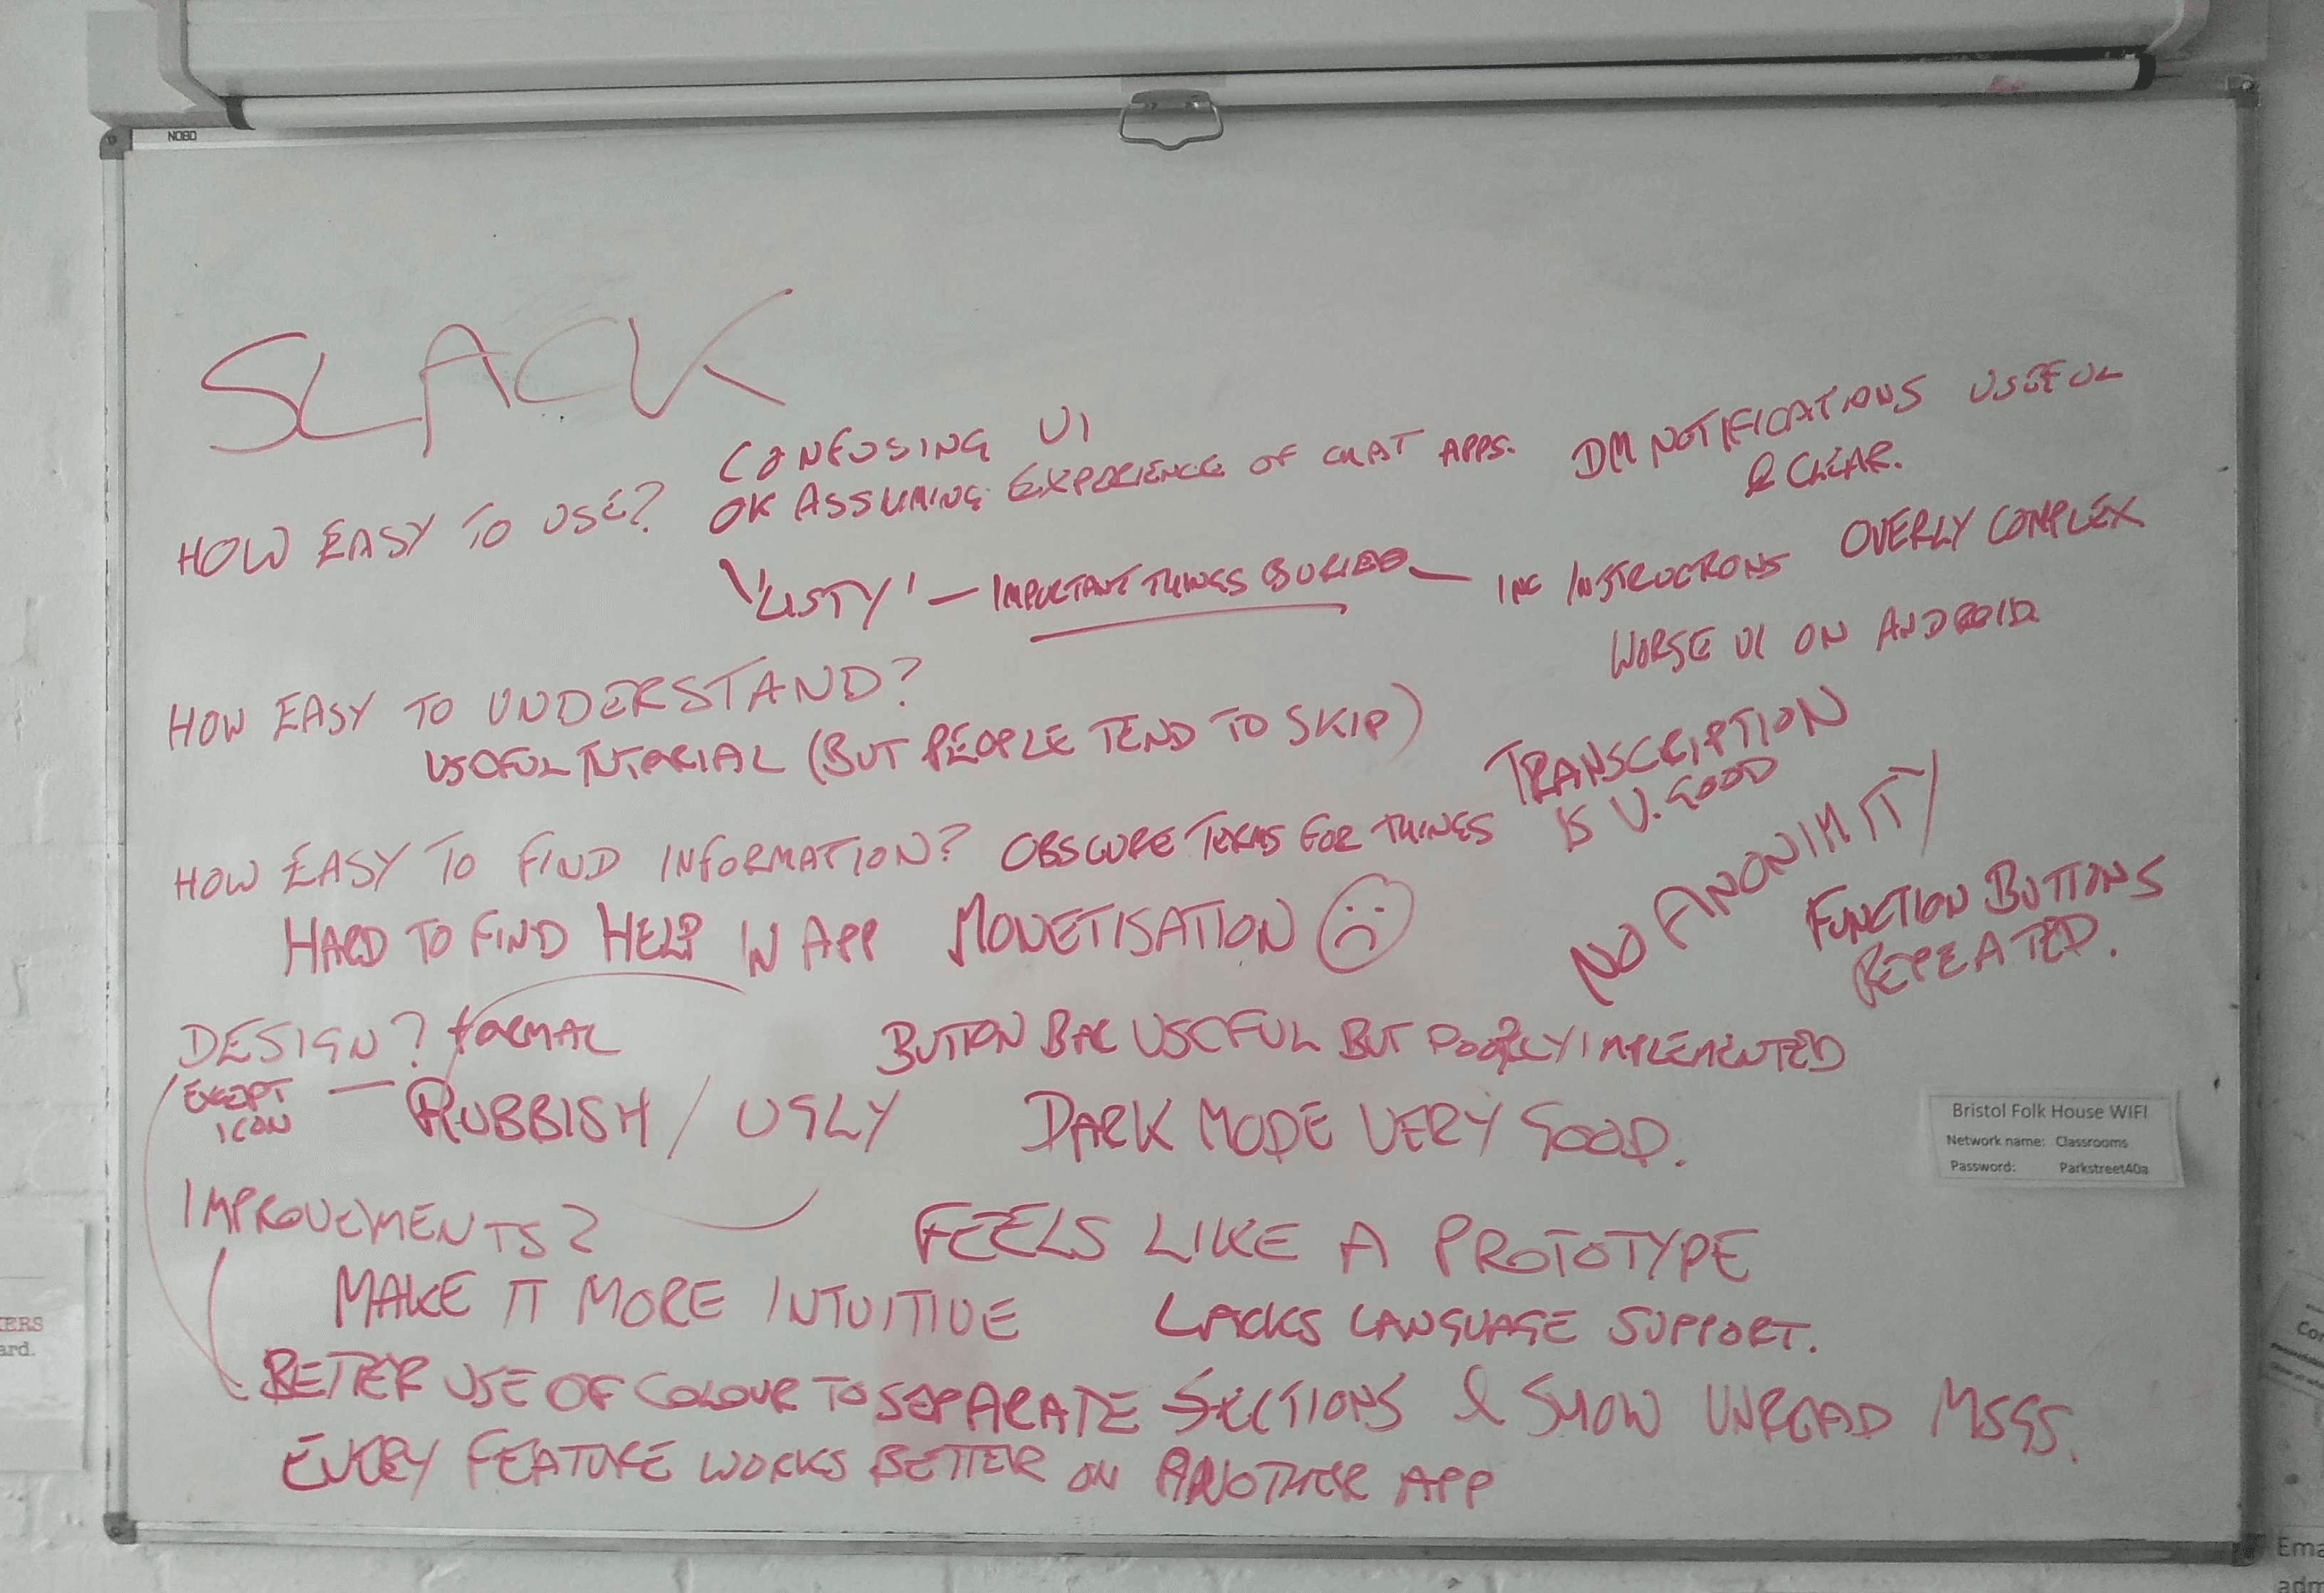 NOBO
SLACK
HOW EASY TO USE?
CONFUSING UI
OK ASSUMING EXPERIENCE OF CHAT APPS.
DM NOTIFICATIONS USEFUL
& CLEAR.
'LISTY' — IMPORTANT THINGS BURIED — INC INSTRUCTIONS
OVERLY COMPLEX
WORSE UI ON ANDROID
HOW EASY TO UNDERSTAND?
USEFUL TUTORIAL (BUT PEOPLE TEND TO SKIP)
TRANSCRIPTION
IS V. GOOD
HOW EASY TO FIND INFORMATION? OBSCURE TERMS FOR THINGS
NO ANONIMITY
HARD TO FIND HELP IN APP
MONETISATION
FUNCTION BUTTONS
REPEATED.
DESIGN? FORMAL
BUTTON BAR USEFUL BUT POORLY IMPLEMENTED
EXCEPT
ICON
— RUBBISH / UGLY
DARK MODE VERY GOOD.
Bristol Folk House WIFI
Network name: Classrooms
Password: Parkstreet40a
IMPROVEMENTS?
FEELS LIKE A PROTOTYPE
MAKE IT MORE INTUITIVE
LACKS LANGUAGE SUPPORT.
BETTER USE OF COLOUR TO SEPARATE SECTIONS & SHOW UNREAD MSGS.
EVERY FEATURE WORKS BETTER ON ANOTHER APP
ERS
ard.
Ema
adm